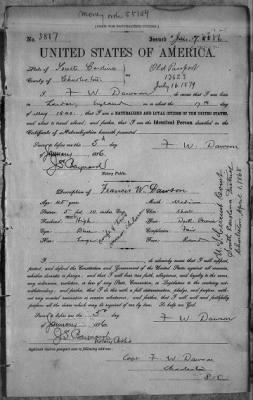 Money order 85184
(FORM FOR NATURALIZED CITIZEN.)
No. 3887 Issued Jan. 7, 1886
UNITED STATES OF AMERICA.
State of South Carolina
County of Charleston
Old Passport
12623
July 16 1879
I F W Dawson
London, England on the 17th day of
May 1840; that I am a NATURALIZED AND LOYAL CITIZEN OF THE UNITED STATES,
and about to travel abroad; and further, that I am the Identical Person described in the
Certificate of Naturalization herewith presented.
Sworn to before me this 5th
of January 1886
F W Dawson
Notary Public.
Description of Francis W. Dawson
Age: 45 years
Mouth: Medium
Stature: 5 feet 10 inches, Eng.
Chin: Short
Forehead: High
Hair: Dark Brown
Eyes: Blue
Complexion: Fair
Nose: Large
Face: Round
U.S. Circuit Court
South Carolina District
Charleston
support, protect, and defend the Constitution and Government of the United States against all enemies,
whether domestic or foreign; and that I will bear true faith, allegiance, and loyalty to the same,
any ordinance, resolution, or law of any State, Convention, or Legislature to the contrary not-
withstanding; and further, that I do this with a full determination, pledge, and purpose, with-
out any mental reservation or evasion whatsoever; and further, that I will well and faithfully
perform all the duties which may be required of me by law. So help me God.
Sworn to before me this 5th
of January 1886
F W Dawson
Notary Public
Applicant desires passport sent to following address:
Capt F W Dawson
Charleston
S.C.